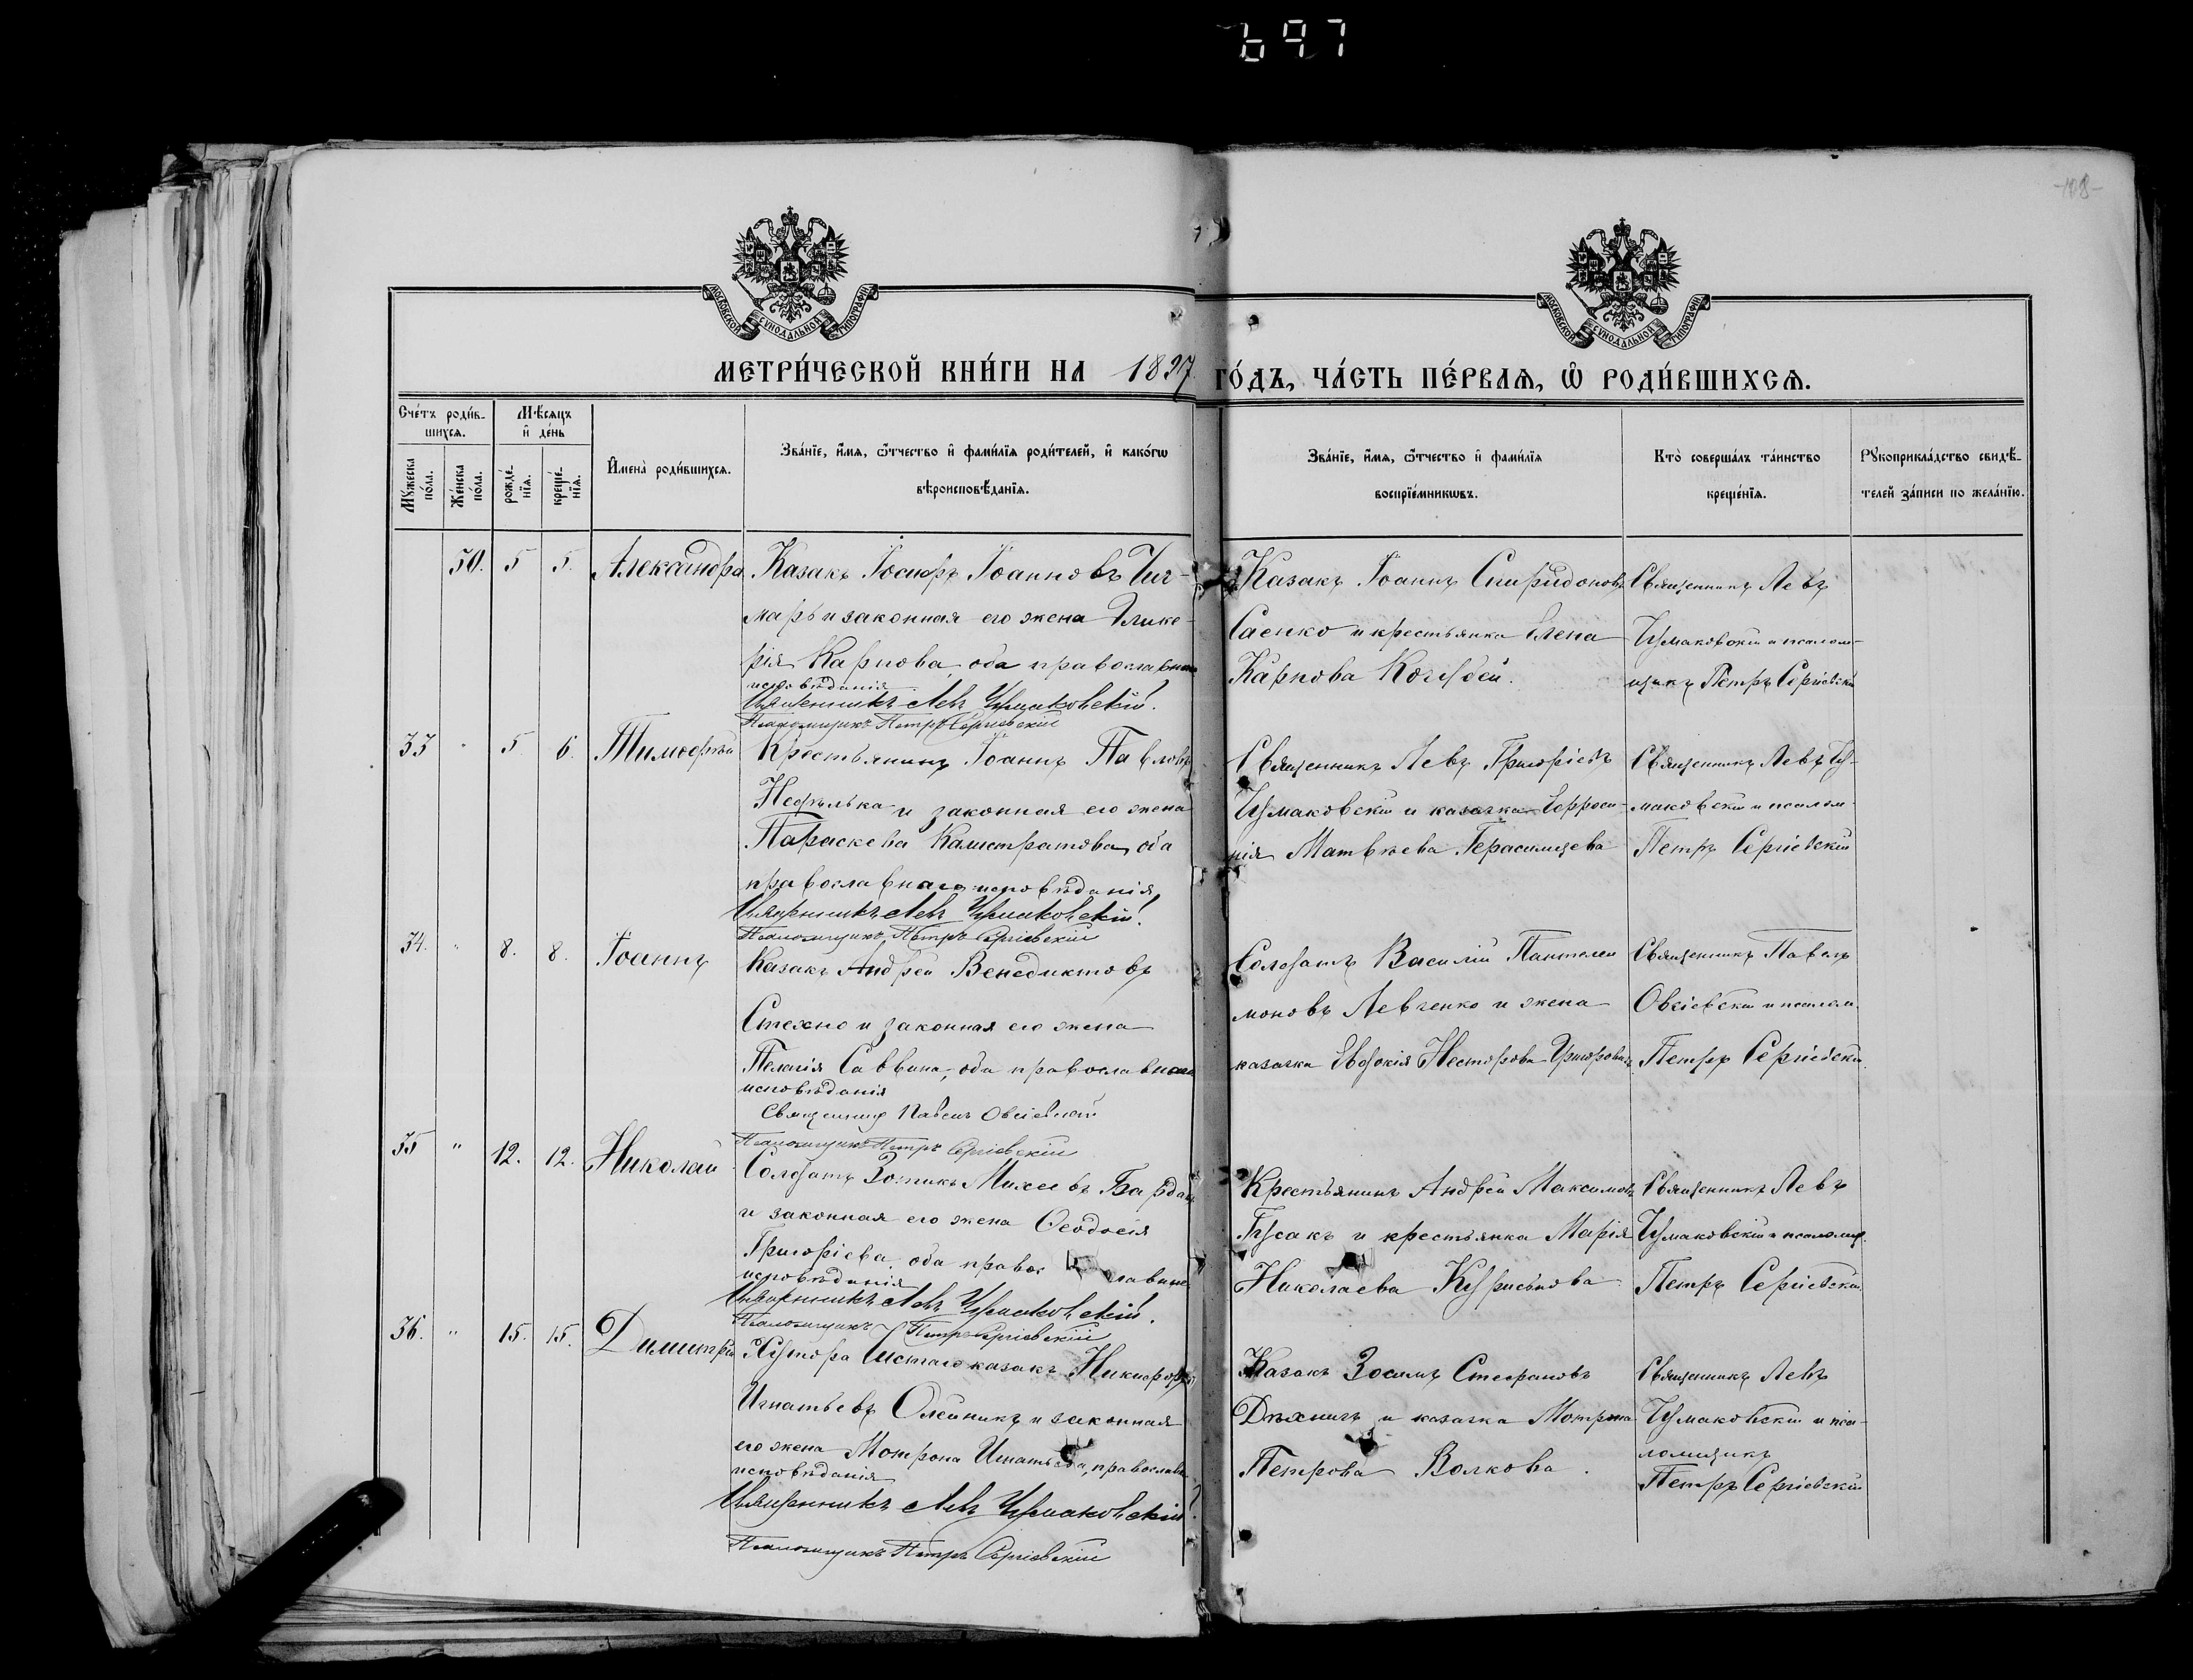 697
-108-
МОСКОВСКОЙ СѴНОДАЛЬНОЙ ТИПОГРАФІИ
МОСКОВСКОЙ СѴНОДАЛЬНОЙ ТИПОГРАФІИ
МЕТРИ́ЧЕСКОЙ КНИ́ГИ НА 1897 ГО́ДЪ, ЧА́СТЬ ПЕ́РВАѦ, Ѡ҆ РОДИ́ВШИХСѦ.
Сче́тъ роди́в-
шихсѧ.
Мꙋжеска по́ла.
Же́нска по́ла.
Мѣ́сѧцъ
и҆ де́нь
рожде́-
нїѧ.
креще́-
нїѧ.
И҆мена̀ роди́вшихсѧ.
Зва́нїе, и҆́мѧ, ѻ҆́тчество и҆ фами́лїѧ роди́телей, и҆ како́гѡ
вѣроисповѣ́данїѧ.
Зва́нїе, и҆́мѧ, ѻ҆́тчество и҆ фами́лїѧ
воспрїе́мникѡвъ.
Кто̀ соверша́лъ та́инство
креще́нїѧ.
Рꙋкоприкла́дство свидѣ́-
телей за́писи по жела́нїю.
30. 5 5. Александра
Казакъ Іосифъ Іоанновъ Чиг-
марь и законная его жена Глике-
рія Карпова, оба православнаго
исповѣданія.
Священникъ Левъ Чумаковскій.
Псаломщикъ Петръ Сергіевскій
Казакъ Іоаннъ Спиридоновъ
Саенко и крестьянка Елена
Карпова Кочубей.
Священникъ Левъ
Чумаковскій и псалом-
щикъ Петръ Сергіевскій
33 " 5 6. Тимофей
Крестьянинъ Іоаннъ Павловъ
и законная его жена
Параскева Калистратова, оба
православнаго исповѣданія,
Священникъ Левъ Чумаковскій.
Псаломщикъ Петръ Сергіевскій
Священникъ Левъ Григоріевъ
Чумаковскій и казачка Евфроси-
нія Матвѣева Герасимцева
Священникъ Левъ Чу-
маковскій и псалом-
Петръ Сергіевскій
34. " 8. 8. Іоаннъ
Казакъ Андрей Венедиктовъ
Стехно и законная его жена
Пелагія Саввина, оба православнаго
исповѣданія
Священникъ Павелъ Овсіевскій
Псаломщикъ Петръ Сергіевскій
Солдатъ Василій Пантелеи
моновъ Левченко и жена
казачка Евдокія Несторова
Священникъ Павелъ
Овсіевскій и псалом.
Петръ Сергіевскій.
35 " 12. 12. Николай
Солдатъ Зотикъ Михеевъ
и законная его жена Ѳеодосія
Григоріева, оба православнаго
исповѣданія
Священникъ Левъ Чумаковскій.
Псаломщикъ Петръ Сергіевскій
Крестьянинъ Андрей Максимовъ
Гусакъ и крестьянка Марія
Николаева
Священникъ Левъ
Чумаковскій и псаломщ.
Петръ Сергіевскій
36. " 15. 15. Димитрій
Хутора казакъ Никифоръ
Игнатьевъ Олейникъ и законная
его жена Мотрона Игнатьева, православн.
исповѣданія
Священникъ Левъ Чумаковскій
Псаломщикъ Петръ Сергіевскій
Казакъ Зосимъ Стефановъ
и казачка Мотрона
Петрова Волкова.
Священникъ Левъ
Чумаковскій и пса-
ломщикъ
Петръ Сергіевскій